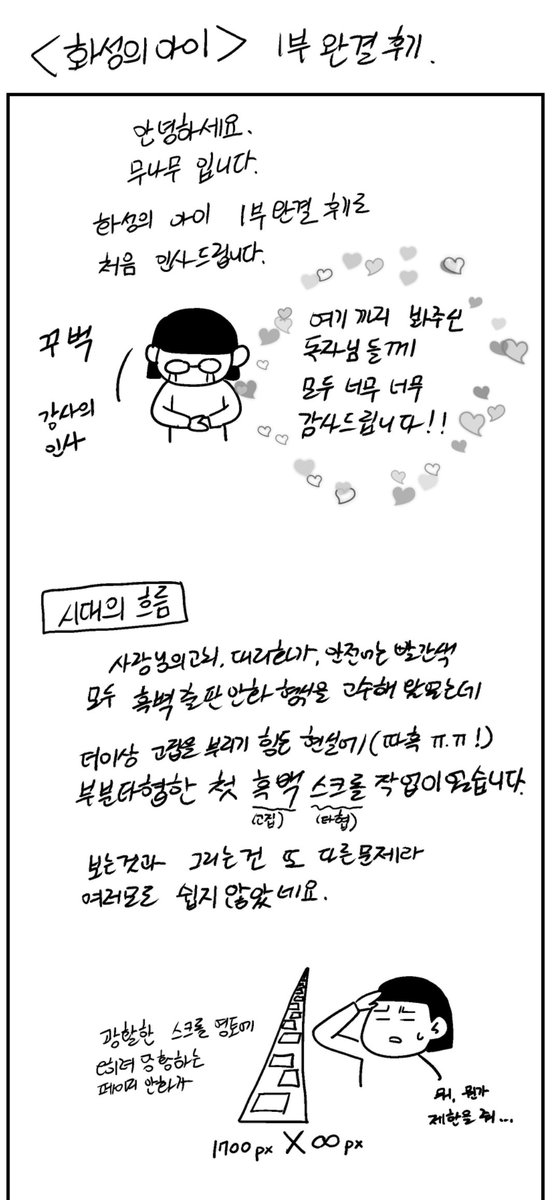 <화성의 아이> 1부 완결 후기.
안녕하세요.
무나무 입니다.
화성의 아이 1부 완결 후기로
처음 인사드립니다.
꾸벅
감사의
인사
여기 까지 봐주신
독자님 들께
모두 너무 너무
감사드립니다!!
시대의 흐름
사랑님의 고회, 대리화가, 안전이는 빨간색
모두 흑백 출판 만화 형식을 고수해 왔었는데
더이상 고집을 부리기 힘든 현실에 (따흑 ㅠ.ㅠ!)
부분타협한 첫 흑백 스크롤 작업이었습니다.
(고집) (타협)
보는것과 그리는건 또 다른문제라
여러모로 쉽지 않았네요.
광활한 스크롤 영토에
오히려 당황하는
페이지 만화가
뭐, 뭔가
제한을 줘...
1700 px X ∞ px